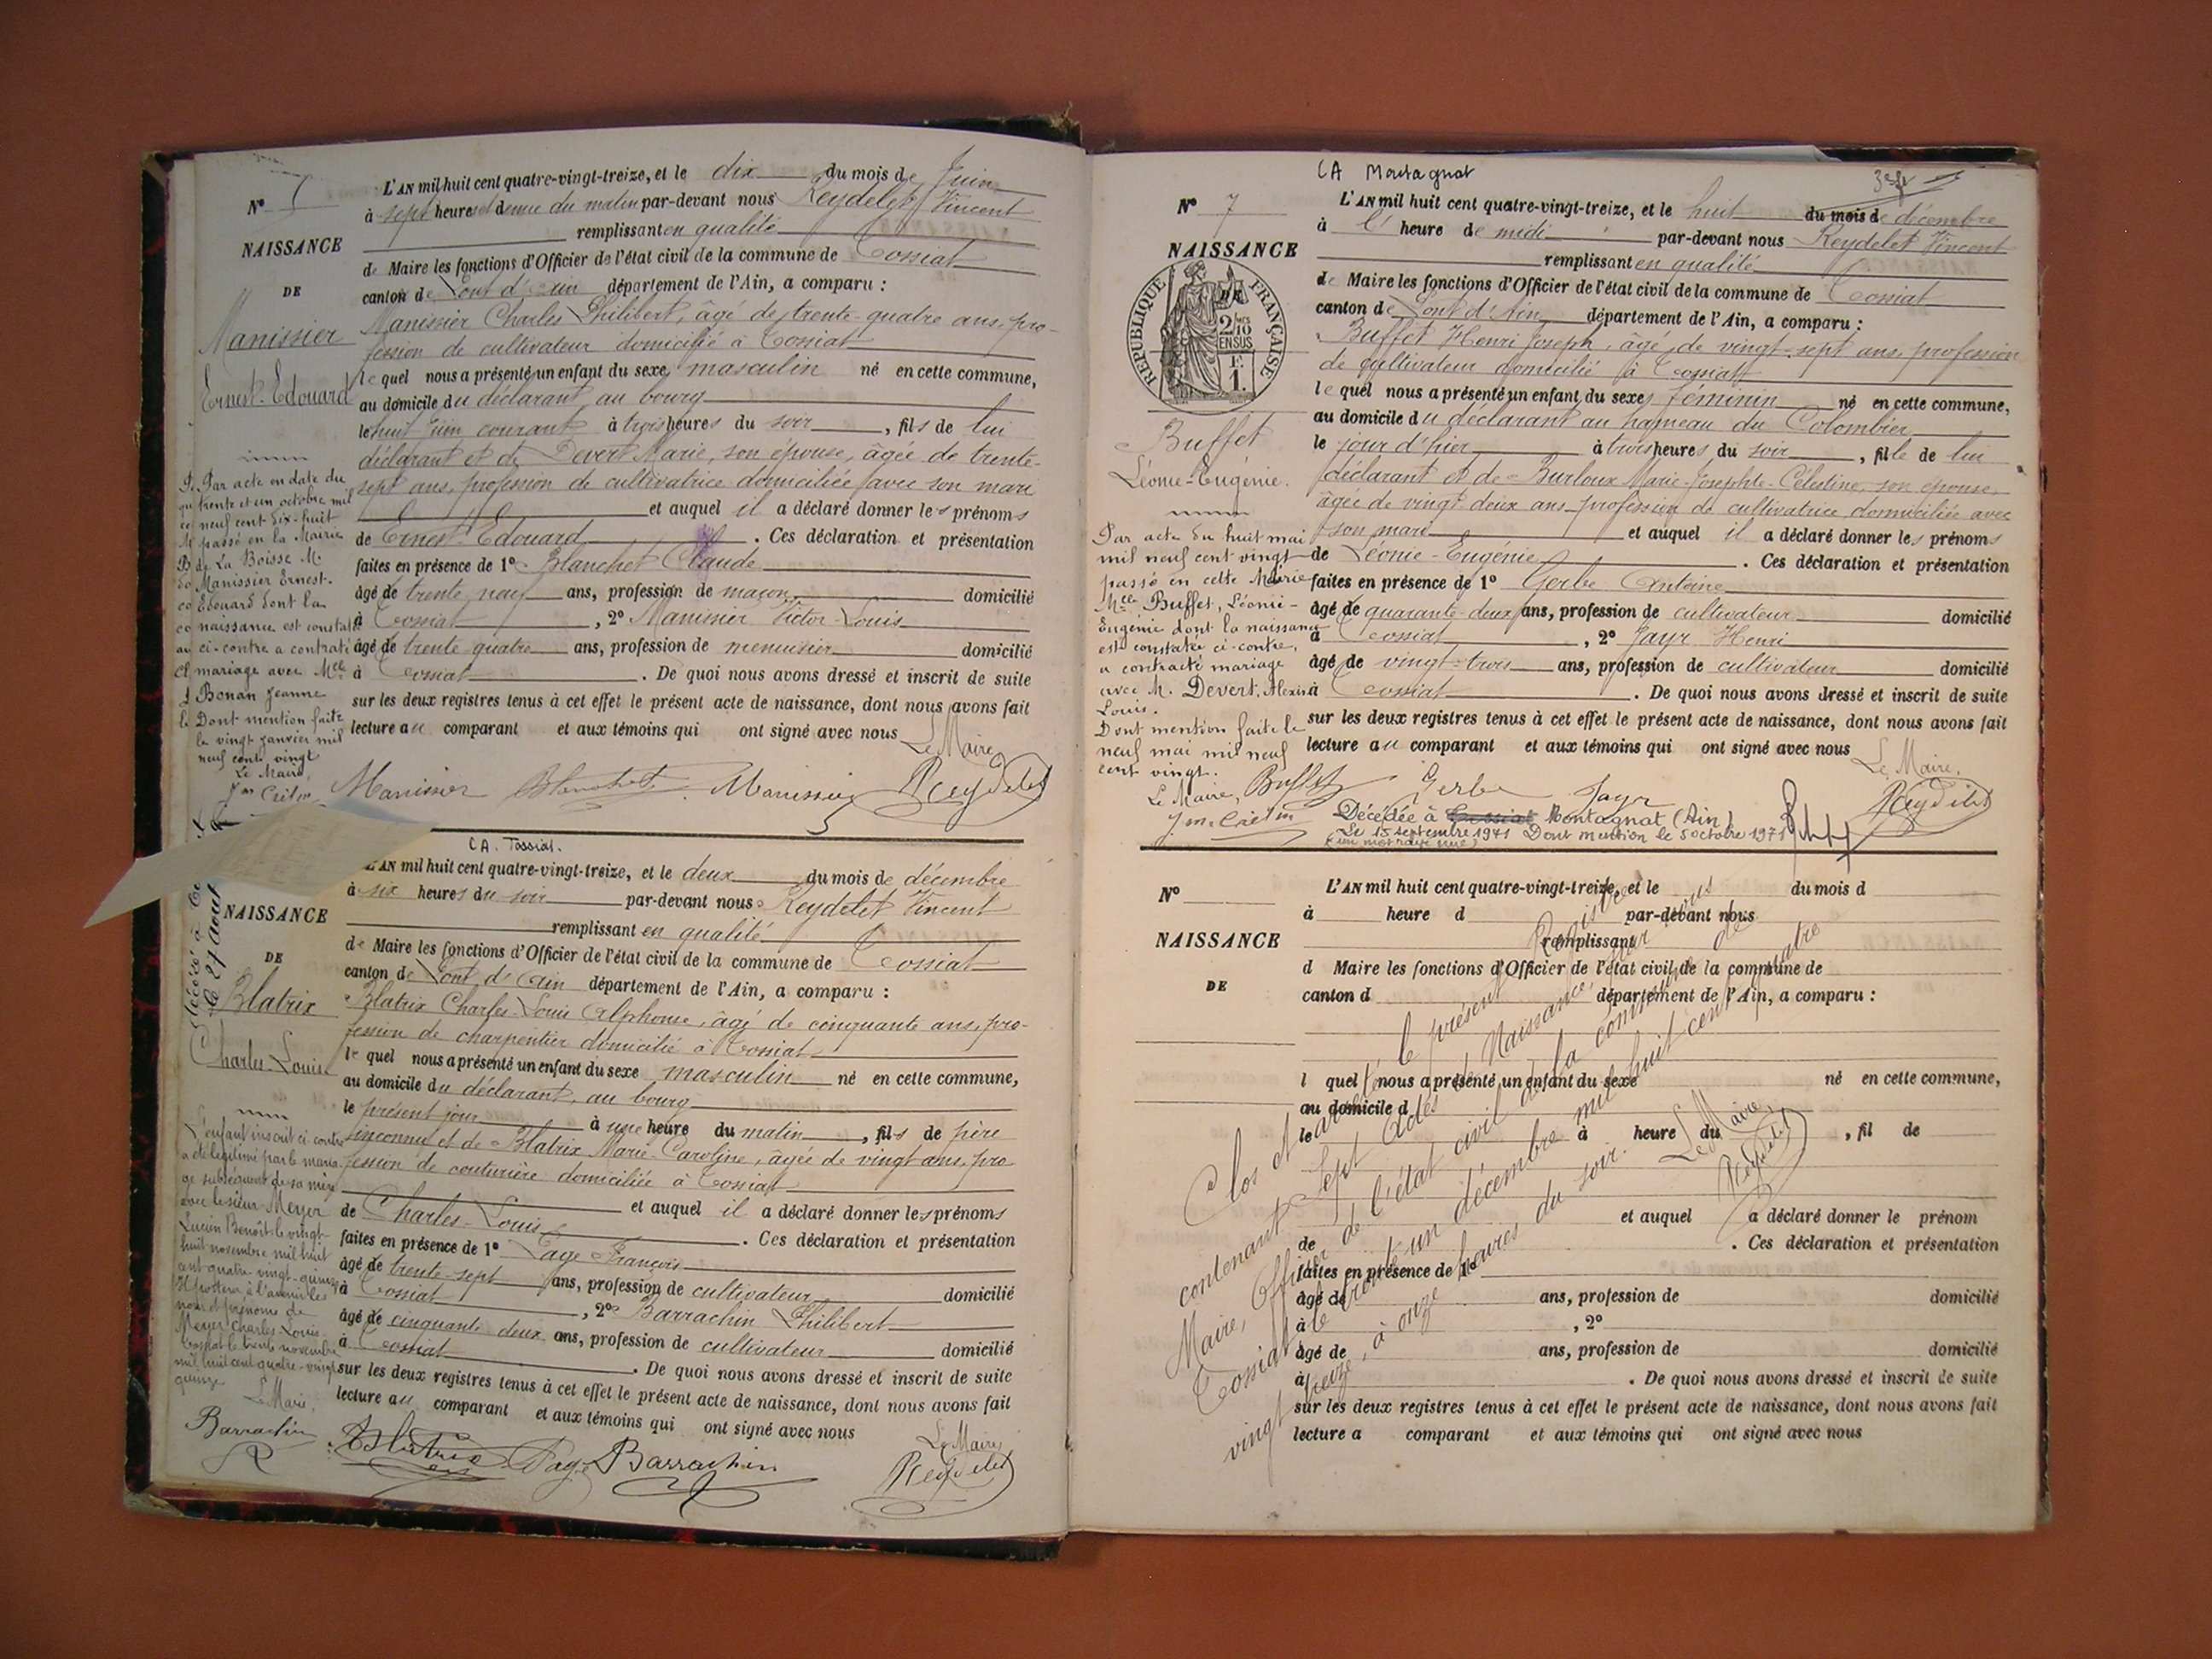 N° 5
NAISSANCE
DE
Manissier
Ernest-Edouard
L'AN mil huit cent quatre-vingt-treize, et le dix du mois de Juin
à sept heures et demie du matin par-devant nous Reydelet Vincent
remplissant en qualité
de Maire les fonctions d'Officier de l'état civil de la commune de Tossiat
canton de Pont d'Ain département de l'Ain, a comparu :
Manissier Charles Philibert, âgé de trente-quatre ans, pro-
fession de cultivateur domicilié à Tossiat
lequel nous a présenté un enfant du sexe masculin né en cette commune,
au domicile du déclarant, au bourg
le huit Juin courant à trois heures du soir, fils de lui
déclarant et de Devert Marie, son épouse, âgée de trente-
sept ans, profession de cultivatrice domiciliée avec son mari
et auquel il a déclaré donner les prénoms
de Ernest-Edouard. Ces déclaration et présentation
faites en présence de 1° Blanchet Claude
âgé de trente neuf ans, profession de maçon domicilié
à Tossiat, 2° Manissier Victor-Louis
âgé de trente quatre ans, profession de menuisier domicilié
à Tossiat. De quoi nous avons dressé et inscrit de suite
sur les deux registres tenus à cet effet le présent acte de naissance, dont nous avons fait
lecture au comparant et aux témoins qui ont signé avec nous
Le Maire
Manissier Blanchet Manissier Reydelet
Par acte en date du
trente et un octobre mil
neuf cent dix-huit
passé en la Mairie
de La Boisse M.
Manissier Ernest-
Edouard dont la
naissance est constatée
ci-contre a contracté
mariage avec Mlle
Bonan Jeanne
Dont mention faite
le vingt janvier mil
neuf cent vingt
Le Maire,
CA. Tossiat.
Décédé à
le 27 Aout
NAISSANCE
DE
Blatrix
Charles-Louis
L'AN mil huit cent quatre-vingt-treize, et le deux du mois de décembre
à six heures du soir par-devant nous Reydelet Vincent
remplissant en qualité
de Maire les fonctions d'Officier de l'état civil de la commune de Tossiat
canton de Pont d'Ain département de l'Ain, a comparu :
Blatrix Charles-Louis Alphonse, âgé de cinquante ans, pro-
fession de charpentier domicilié à Tossiat
lequel nous a présenté un enfant du sexe masculin né en cette commune,
au domicile du déclarant, au bourg
le présent jour à une heure du matin, fils de père
inconnu et de Blatrix Marie-Caroline, âgée de vingt ans, pro
fession de couturière domiciliée à Tossiat
et auquel il a déclaré donner les prénoms
de Charles-Louis. Ces déclaration et présentation
faites en présence de 1° Page François
âgé de trente-sept ans, profession de cultivateur domicilié
à Tossiat, 2° Barrachin Philibert
âgé de cinquante deux ans, profession de cultivateur domicilié
à Tossiat. De quoi nous avons dressé et inscrit de suite
sur les deux registres tenus à cet effet le présent acte de naissance, dont nous avons fait
lecture au comparant et aux témoins qui ont signé avec nous
Le Maire,
Blatrix Page Barrachin Reydelet
L'enfant inscrit ci contre
a été légitimé par le maria-
ge subséquent de sa mère
avec le sieur Meyer
Lucien Benoît le vingt-
huit novembre mil huit
cent quatre vingt-quinze
Il portera à l'avenir les
nom et prénoms de
Meyer Charles Louis.
Tossiat le trente novembre
mil huit cent quatre-vingt
quinze
Le Maire,
Barrachin
CA Montagnat
N° 7
NAISSANCE
DE
RÉPUBLIQUE FRANÇAISE
2/10
EN SUS
1F.
Buffet
Léonie-Eugénie.
L'AN mil huit cent quatre-vingt-treize, et le huit du mois de décembre
à l' heure de midi par-devant nous Reydelet Vincent
remplissant en qualité
de Maire les fonctions d'Officier de l'état civil de la commune de Tossiat
canton de Pont d'Ain département de l'Ain, a comparu :
Buffet Henri Joseph, âgé de vingt-sept ans, profession
de cultivateur domicilié à Tossiat
lequel nous a présenté un enfant du sexe féminin né en cette commune,
au domicile du déclarant au hameau du Colombier
le jour d'hier à trois heures du soir, fille de lui
déclarant et de Burloux Marie-Josephte-Célestine, son épouse,
âgée de vingt-deux ans profession de cultivatrice domiciliée avec
son mari et auquel il a déclaré donner les prénoms
de Léonie-Eugénie. Ces déclaration et présentation
faites en présence de 1° Gerbe Antoine
âgé de quarante-deux ans, profession de cultivateur domicilié
à Tossiat, 2° Jayr Henri
âgé de vingt-trois ans, profession de cultivateur domicilié
à Tossiat. De quoi nous avons dressé et inscrit de suite
sur les deux registres tenus à cet effet le présent acte de naissance, dont nous avons fait
lecture au comparant et aux témoins qui ont signé avec nous
Le Maire,
Buffet Gerbe Jayr Reydelet
Par acte du huit mai
mil neuf cent vingt
passé en cette Mairie
Mlle Buffet, Léonie-
Eugénie dont la naissance
est constatée ci-contre,
a contracté mariage
avec M. Devert, Alexis
Louis.
Dont mention faite le
neuf mai mil neuf
cent vingt.
Le Maire,
Décédée à Tossiat Montagnat (Ain)
Le 15 septembre 1971 Dont mention le 5 octobre 1971
(un mot rayé nul)
N°
NAISSANCE
DE
L'AN mil huit cent quatre-vingt-treize, et le du mois d
à heure d par-devant nous
remplissant
d Maire les fonctions d'Officier de l'état civil de la commune de
canton d département de l'Ain, a comparu :
l quel nous a présenté un enfant du sexe né en cette commune,
au domicile d
le à heure du , fil de
et auquel a déclaré donner le prénom
de . Ces déclaration et présentation
faites en présence de 1°
âgé de ans, profession de domicilié
à , 2°
âgé de ans, profession de domicilié
à . De quoi nous avons dressé et inscrit de suite
sur les deux registres tenus à cet effet le présent acte de naissance, dont nous avons fait
lecture a comparant et aux témoins qui ont signé avec nous
Clos et arrêté le présent Registre
contenant sept Actes de Naissance, par nous
Maire, Officier de l'état civil de la commune de
Tossiat le trente-un décembre mil huit cent quatre
vingt treize, à onze heures du soir.
Le Maire,
Reydelet